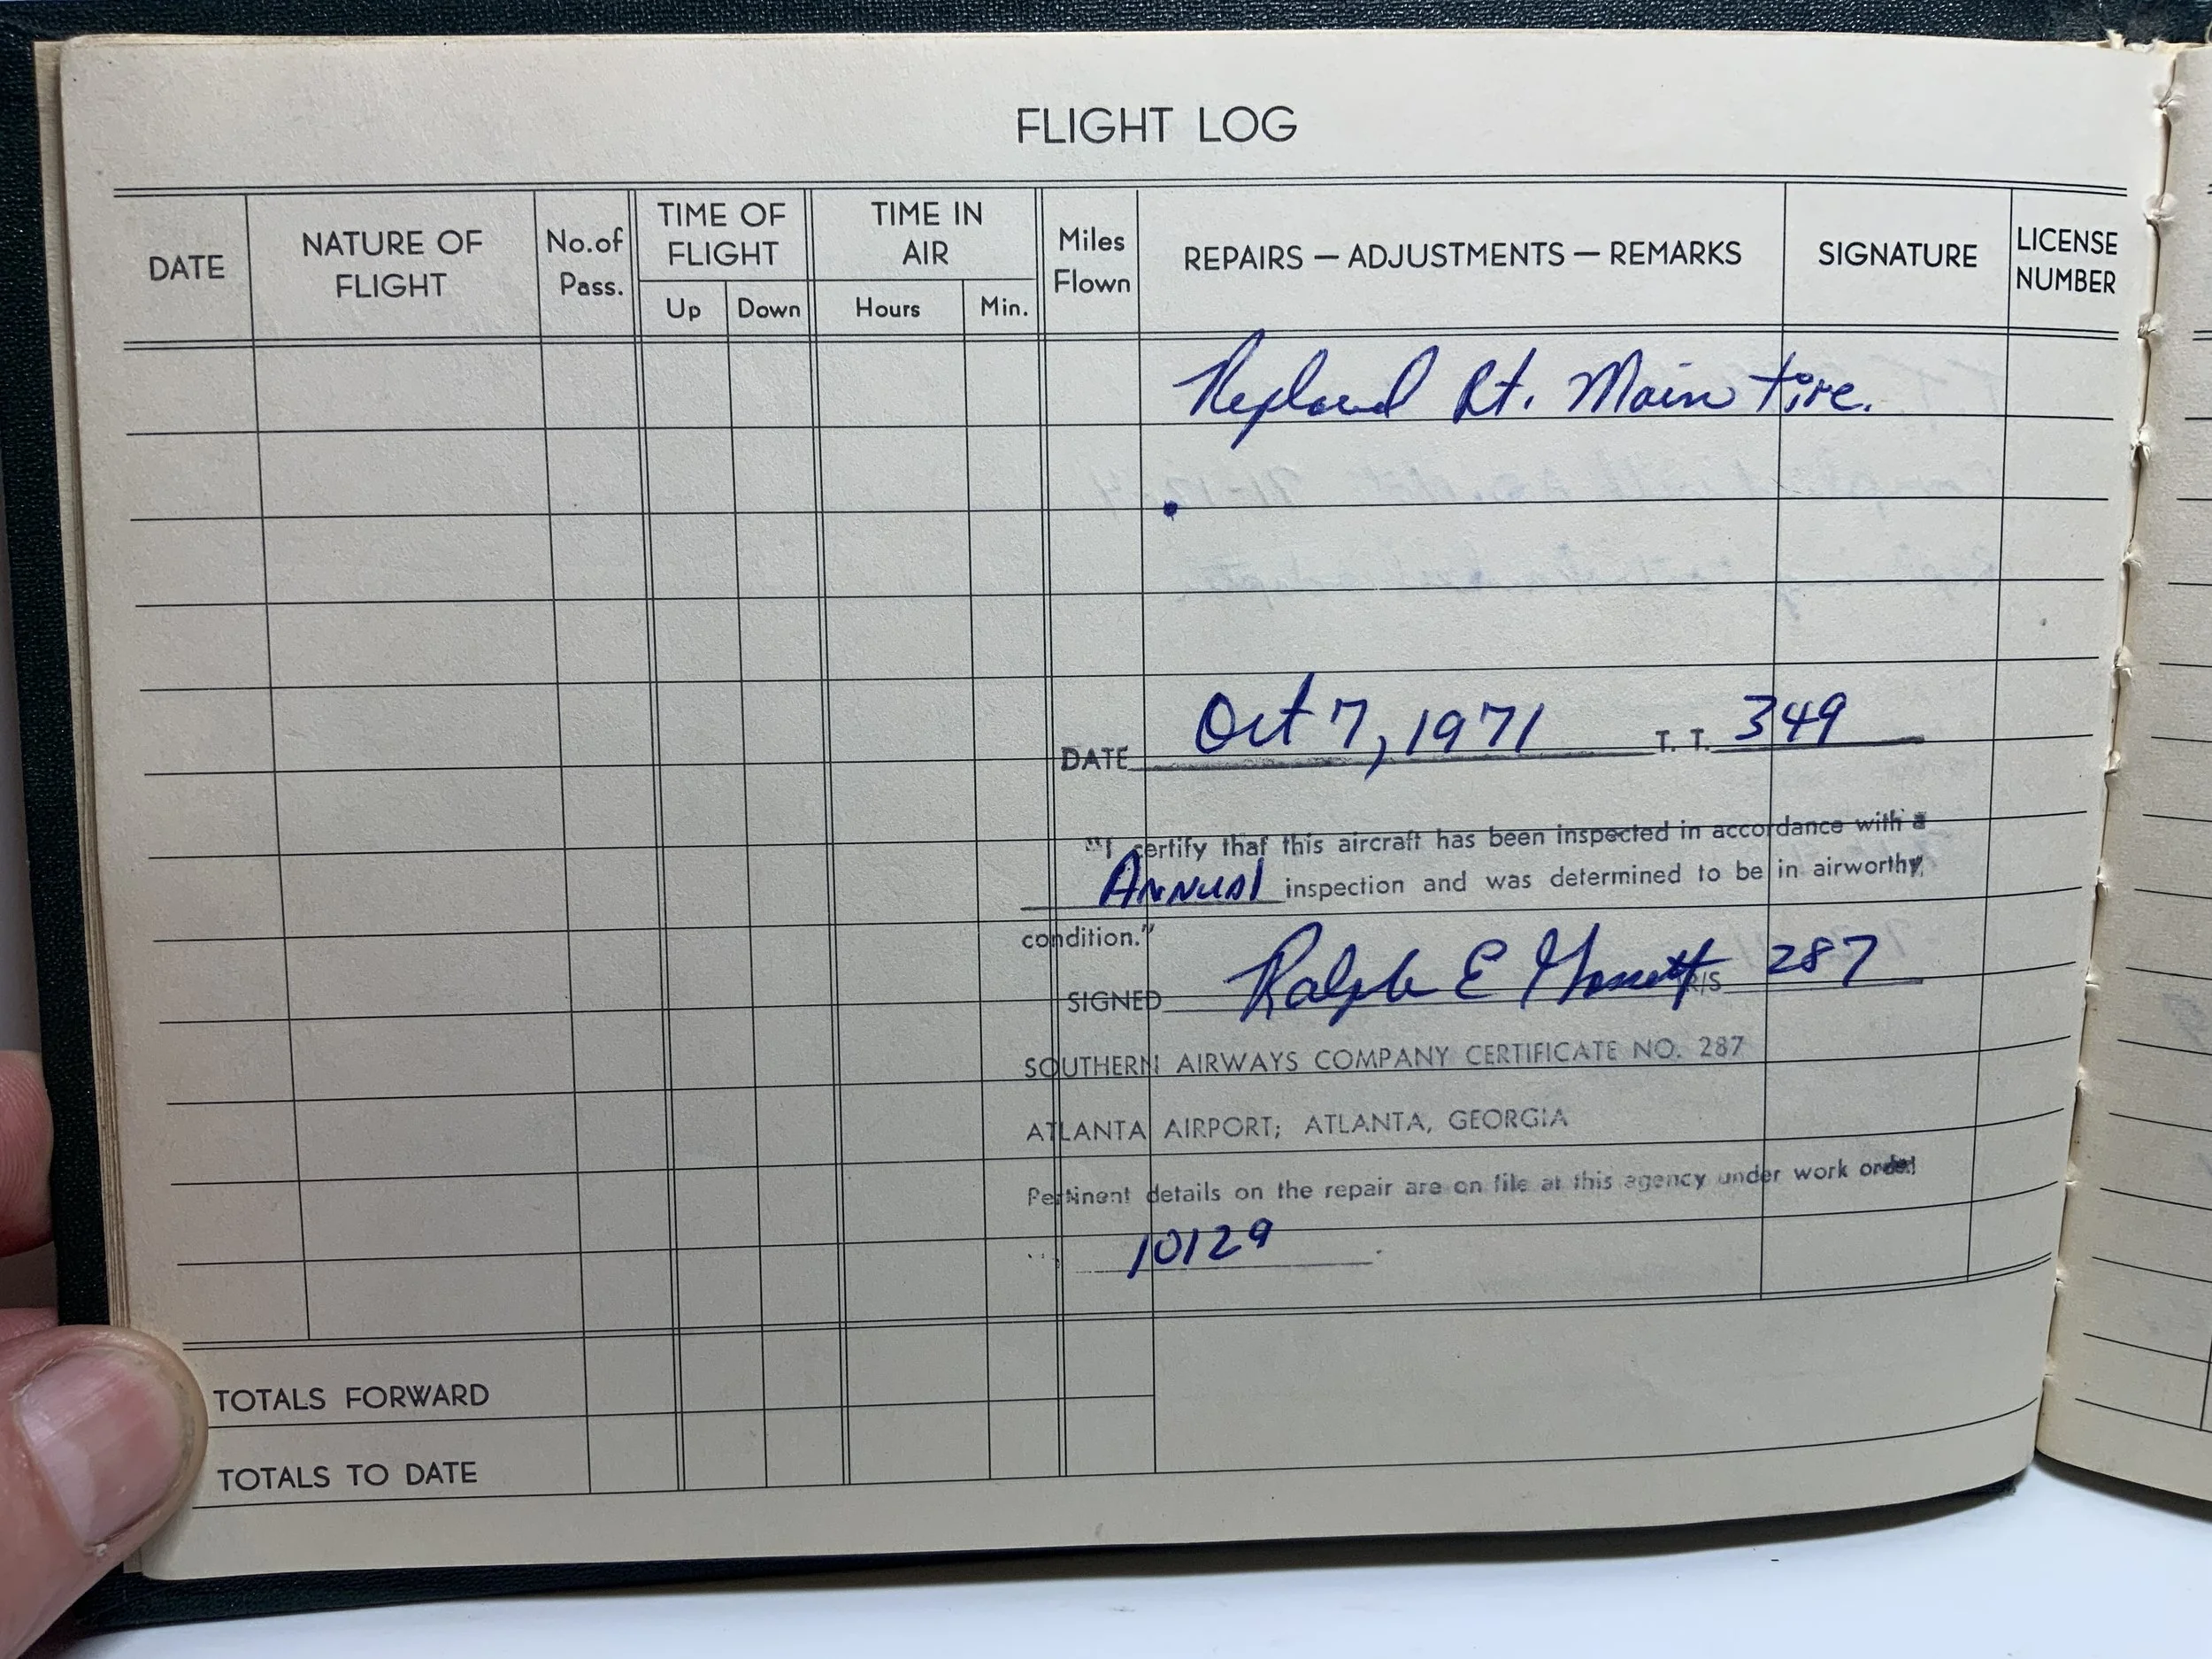 FLIGHT LOG
DATE
NATURE OF
FLIGHT
No.of
Pass.
TIME OF
FLIGHT
Up
Down
TIME IN
AIR
Hours
Min.
Miles
Flown
REPAIRS — ADJUSTMENTS — REMARKS
SIGNATURE
LICENSE
NUMBER
Replaced Rt. Main tire.
DATE Oct 7, 1971 T. T. 349
"I certify that this aircraft has been inspected in accordance with a
Annual inspection and was determined to be in airworthy
condition."
SIGNED Ralph E R/S 287
SOUTHERN AIRWAYS COMPANY CERTIFICATE NO. 287
ATLANTA AIRPORT; ATLANTA, GEORGIA
Pertinent details on the repair are on file at this agency under work order
10129
TOTALS FORWARD
TOTALS TO DATE